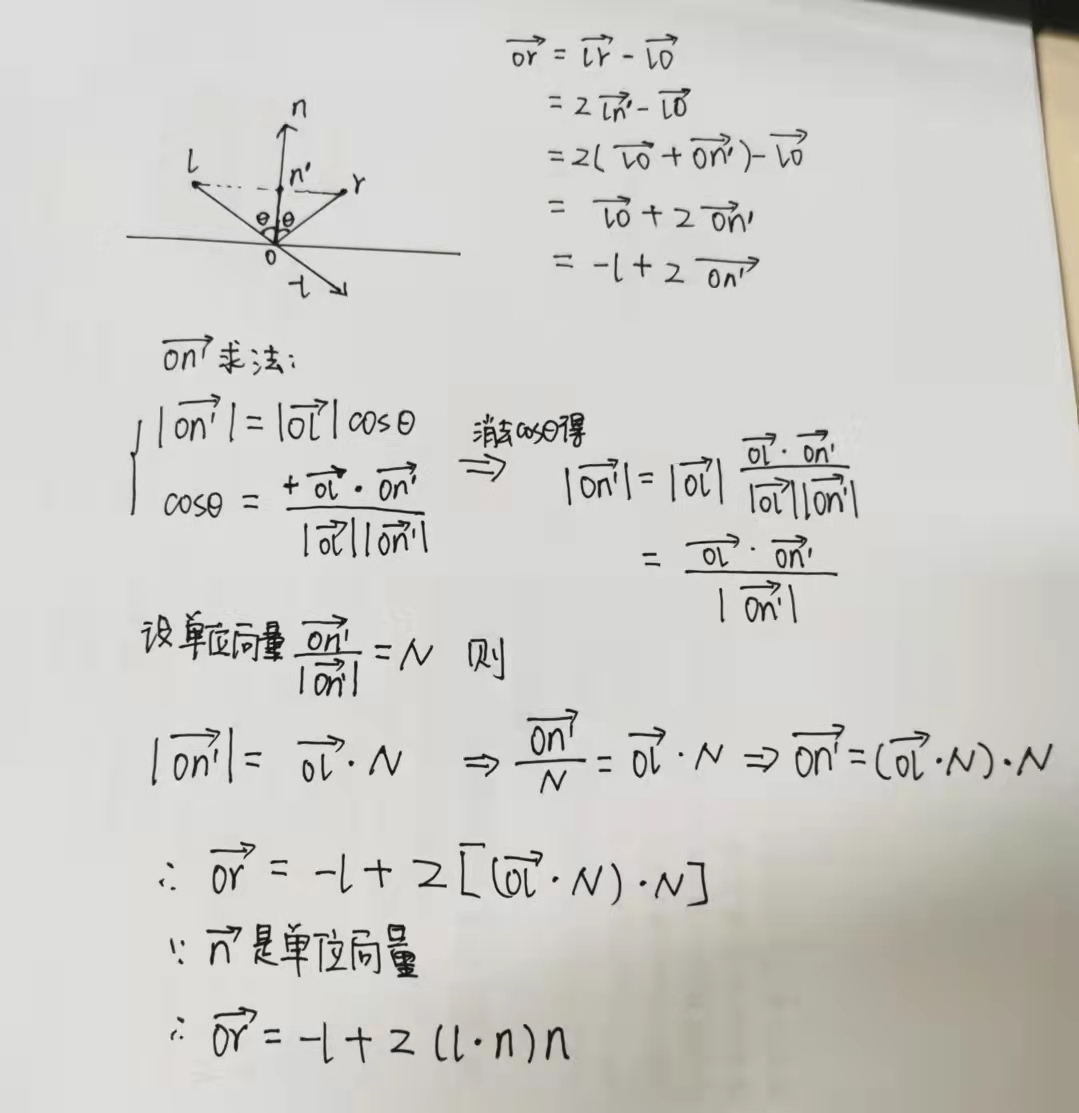 n
l n' r
θ θ
o
-l
→or = →lr - →lo
= 2 →ln' - →lo
= 2(→lo + →on') - →lo
= →lo + 2 →on'
= -l + 2 →on'
→on' 求法:
{ |→on'| = |→ol| cosθ
cosθ = +→ol · →on' / |→ol||→on'|
消去cosθ得
⇒ |→on'| = |→ol| →ol · →on' / |→ol||→on'|
= →ol · →on' / |→on'|
设单位向量 →on' / |→on'| = N 则
|→on'| = →ol · N ⇒ →on' / N = →ol · N ⇒ →on' = (→ol · N) · N
∴ →or = -l + 2 [(→ol · N) · N]
∵ →n 是单位向量
∴ →or = -l + 2 (l · n) n